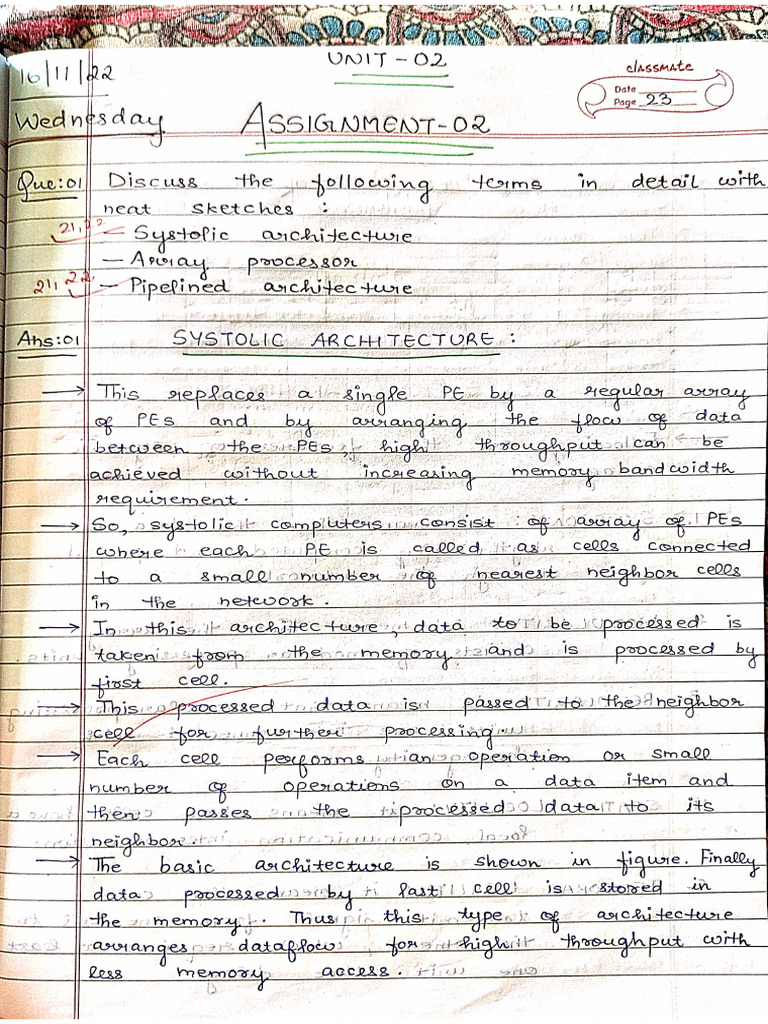 UNIT-02
16/11/22
classmate
Date
Page 23
Wednesday
ASSIGNMENT-02
Que:01 Discuss the following terms in detail with
neat sketches :
21,22
— Systolic architecture
— Array processor
21,22
— Pipelined architecture
Ans:01 SYSTOLIC ARCHITECTURE :
→ This replaces a single PE by a regular array
of PEs and by arranging the flow of data
between the PEs, high throughput can be
achieved without increasing memory bandwidth
requirement.
→ So, systolic computers consist of array of PEs
where each PE is called as cells connected
to a small number of nearest neighbor cells
in the network.
→ In this architecture, data to be processed is
taken from the memory and is processed by
first cell.
→ This processed data is passed to the neighbor
cell for further processing.
→ Each cell performs an operation or small
number of operations on a data item and
then passes the processed data to its
neighbor.
→ The basic architecture is shown in figure. Finally
data processed by last cell is stored in
the memory. Thus this type of architecture
arranges dataflow for high throughput with
less memory access.